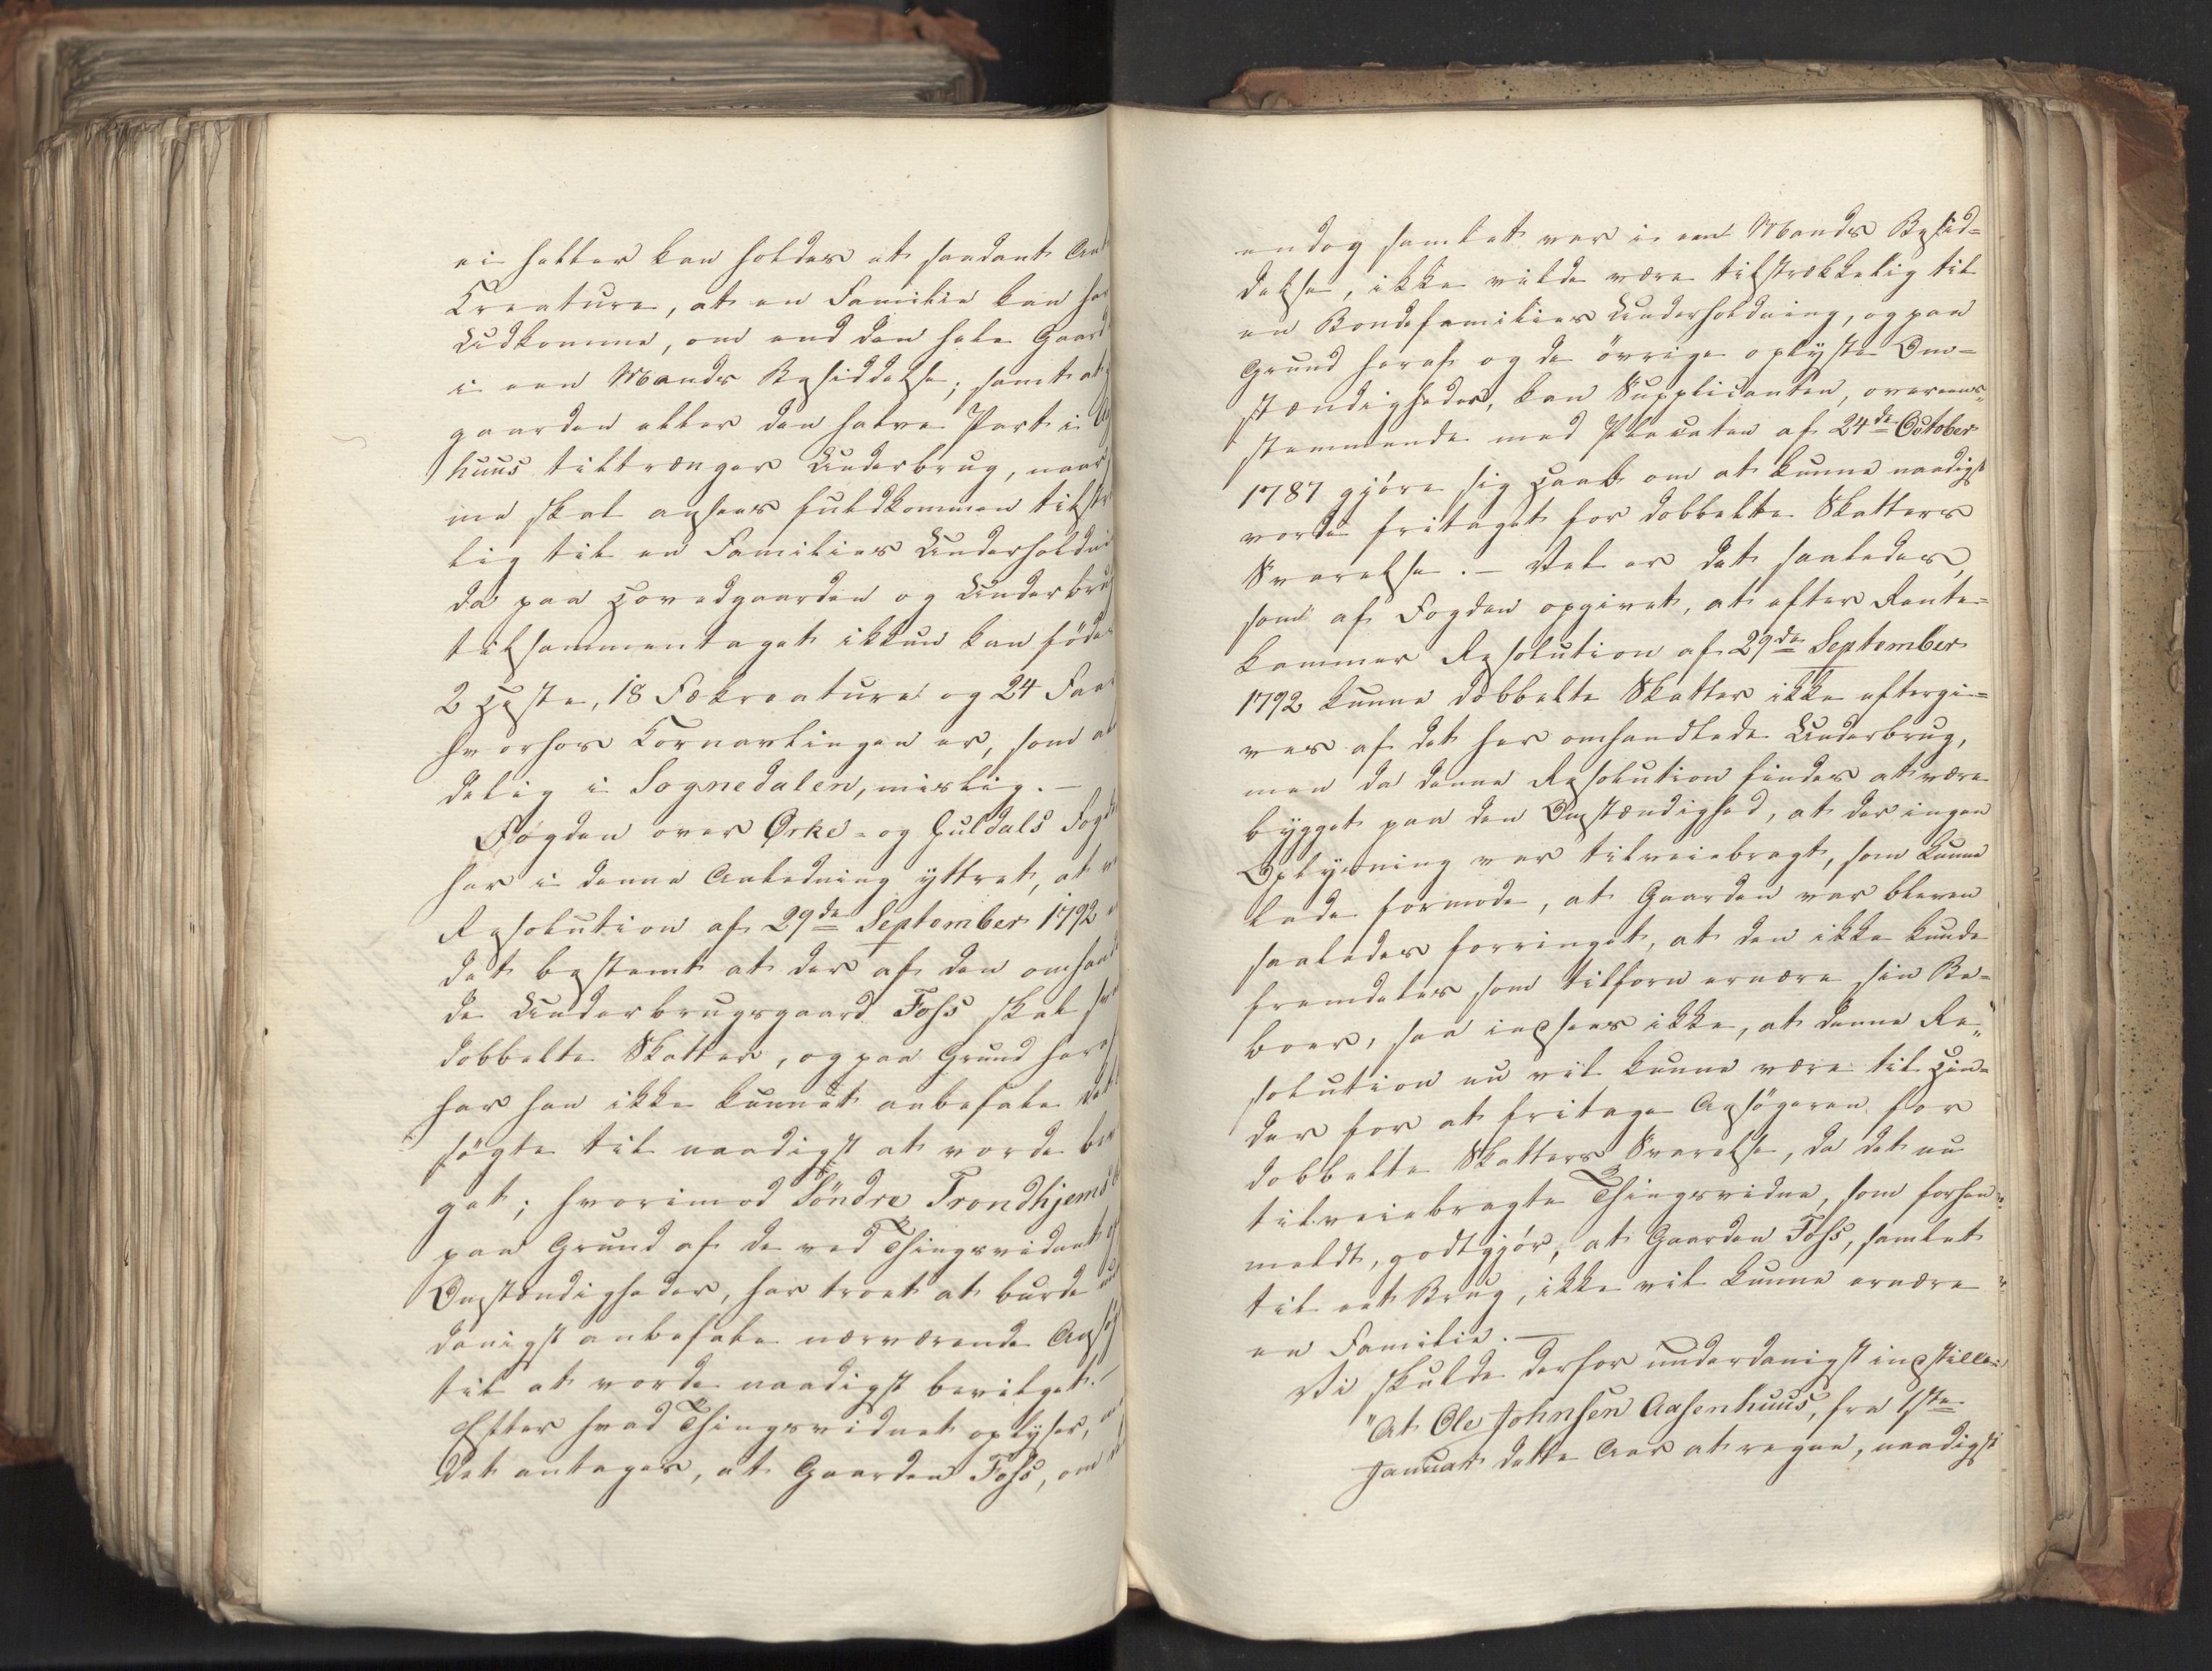 ei heller kan holdes et saadant
Creature, at en Familie kan
Udkomme, om end den hele Gaard
i een Mands Besiddelse; samt at
gaarden eller den halve Part i
huus tiltrænger Underbrug, naar
me skal ansees fuldkommen
lig til en Families
da paa Hovedgaarden og
tilsammentaget ikkun kan fødes
2 Heste, 18 Fækreature og 24
hvorhos Kornavlingen er, som
delig i Sognedalen, mislig. –
Fogden over Orke- og Guldals
har i denne Anledning yttret, at
Resolution af 29de September 1792
det bestemt at der af den
de Underbrugsgaard Foss skal
dobbelte Skatter, og paa Grund
har han ikke kunnet anbefale
søgte til naadigst at vorde
get; hvorimod Söndre Trondhjems
paa Grund af de ved Thingsvidnet
Omstændigheder, har troet at burde
danigst anbefale nærværende
til at vorde naadigst bevilget. –
Efter hvad Thingsvidnet oplyser,
det antages, at Gaarden Foss, om
endog samlet var i een Mands Besid=
delse, ikke vilde være tilstrækkelig til
en Bondefamilies Underholdning, og paa
Grund heraf og de övrige oplyste Om=
stændigheder, kan Supplicanten, overeens=
stemmende med Placaten af 24de October
1787 gjöre sig Haab om at kunne naadigst
vorde fritaget for dobbelte Skatters
Svarelse. – Vel er det saaledes,
som af Fogden opgivet, at efter Rente=
kammer Resolution af 29de September
1792 kunne dobbelte Skatter ikke eftergi=
ves af det her omhandlede Underbrug,
men da denne Resolution findes at være
bygget paa den Omstændighed, at der ingen
Oplysning var tilveiebragt, som kunne
lade formode, at Gaarden var bleven
saaledes forringet, at den ikke kunde
fremdeles som tilforn ernære sin Be=
boer, saa indsees ikke, at denne Re=
solution nu vil kunne være til Hin=
der for at fritage Ansögeren for
dobbelte Skatters Svarelse, da det nu
tilveiebragte Thingsvidne, som forhen
meldt, godtgjör, at Gaarden Foss, samlet
til eet Brug, ikke vil kunne ernære
en Familie. –
Vi skulde derfor underdanigst indstille:
"At Ole Johnsen Aasenhuus, fra 1ste
Januar dette Aar at regne, naadigst